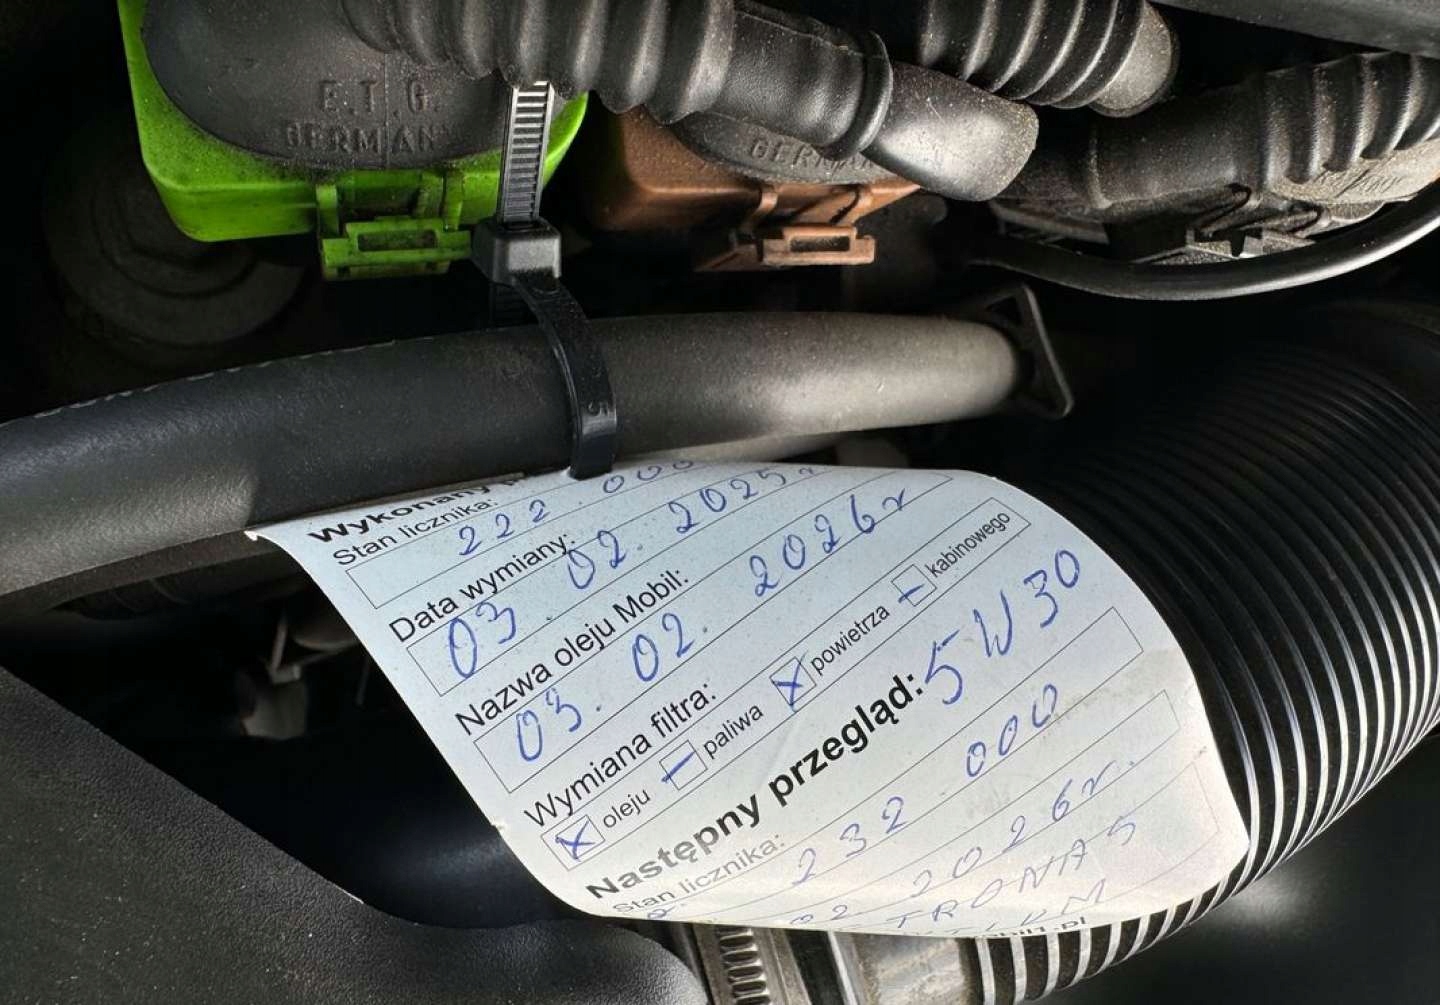 E.T.G.
GERMANY
GERMAN
Wykonany
Stan licznika:
222.000
Data wymiany:
03.02.2025r
Nazwa oleju Mobil:
03.02.2026r
Wymiana filtra:
X oleju – paliwa X powietrza – kabinowego
Następny przegląd: 5W30
Stan licznika:
232 000
02 2026r.
TRONAS